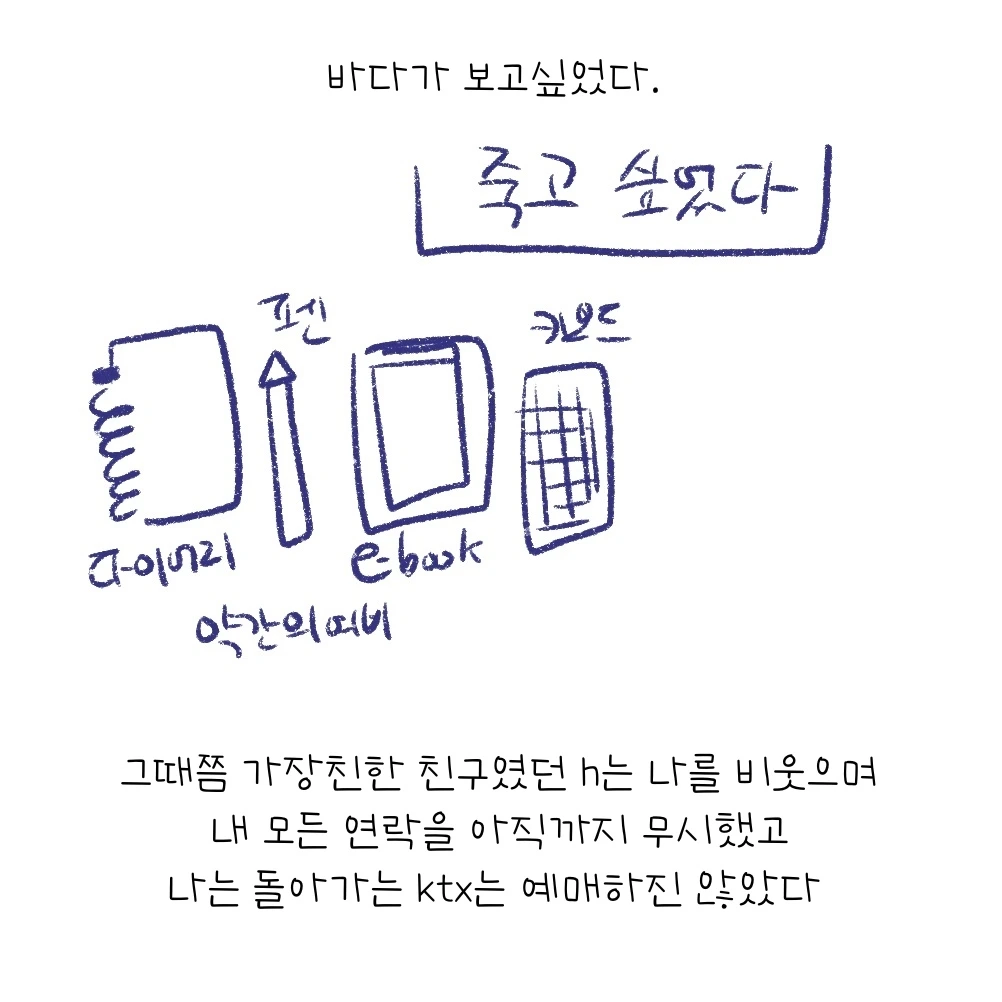 바다가 보고싶었다.
죽고 싶었다
펜
키보드
다이어리
e-book
약간의 여비
그때쯤 가장친한 친구였던 h는 나를 비웃으며
내 모든 연락을 아직까지 무시했고
나는 돌아가는 ktx는 예매하진 않았다